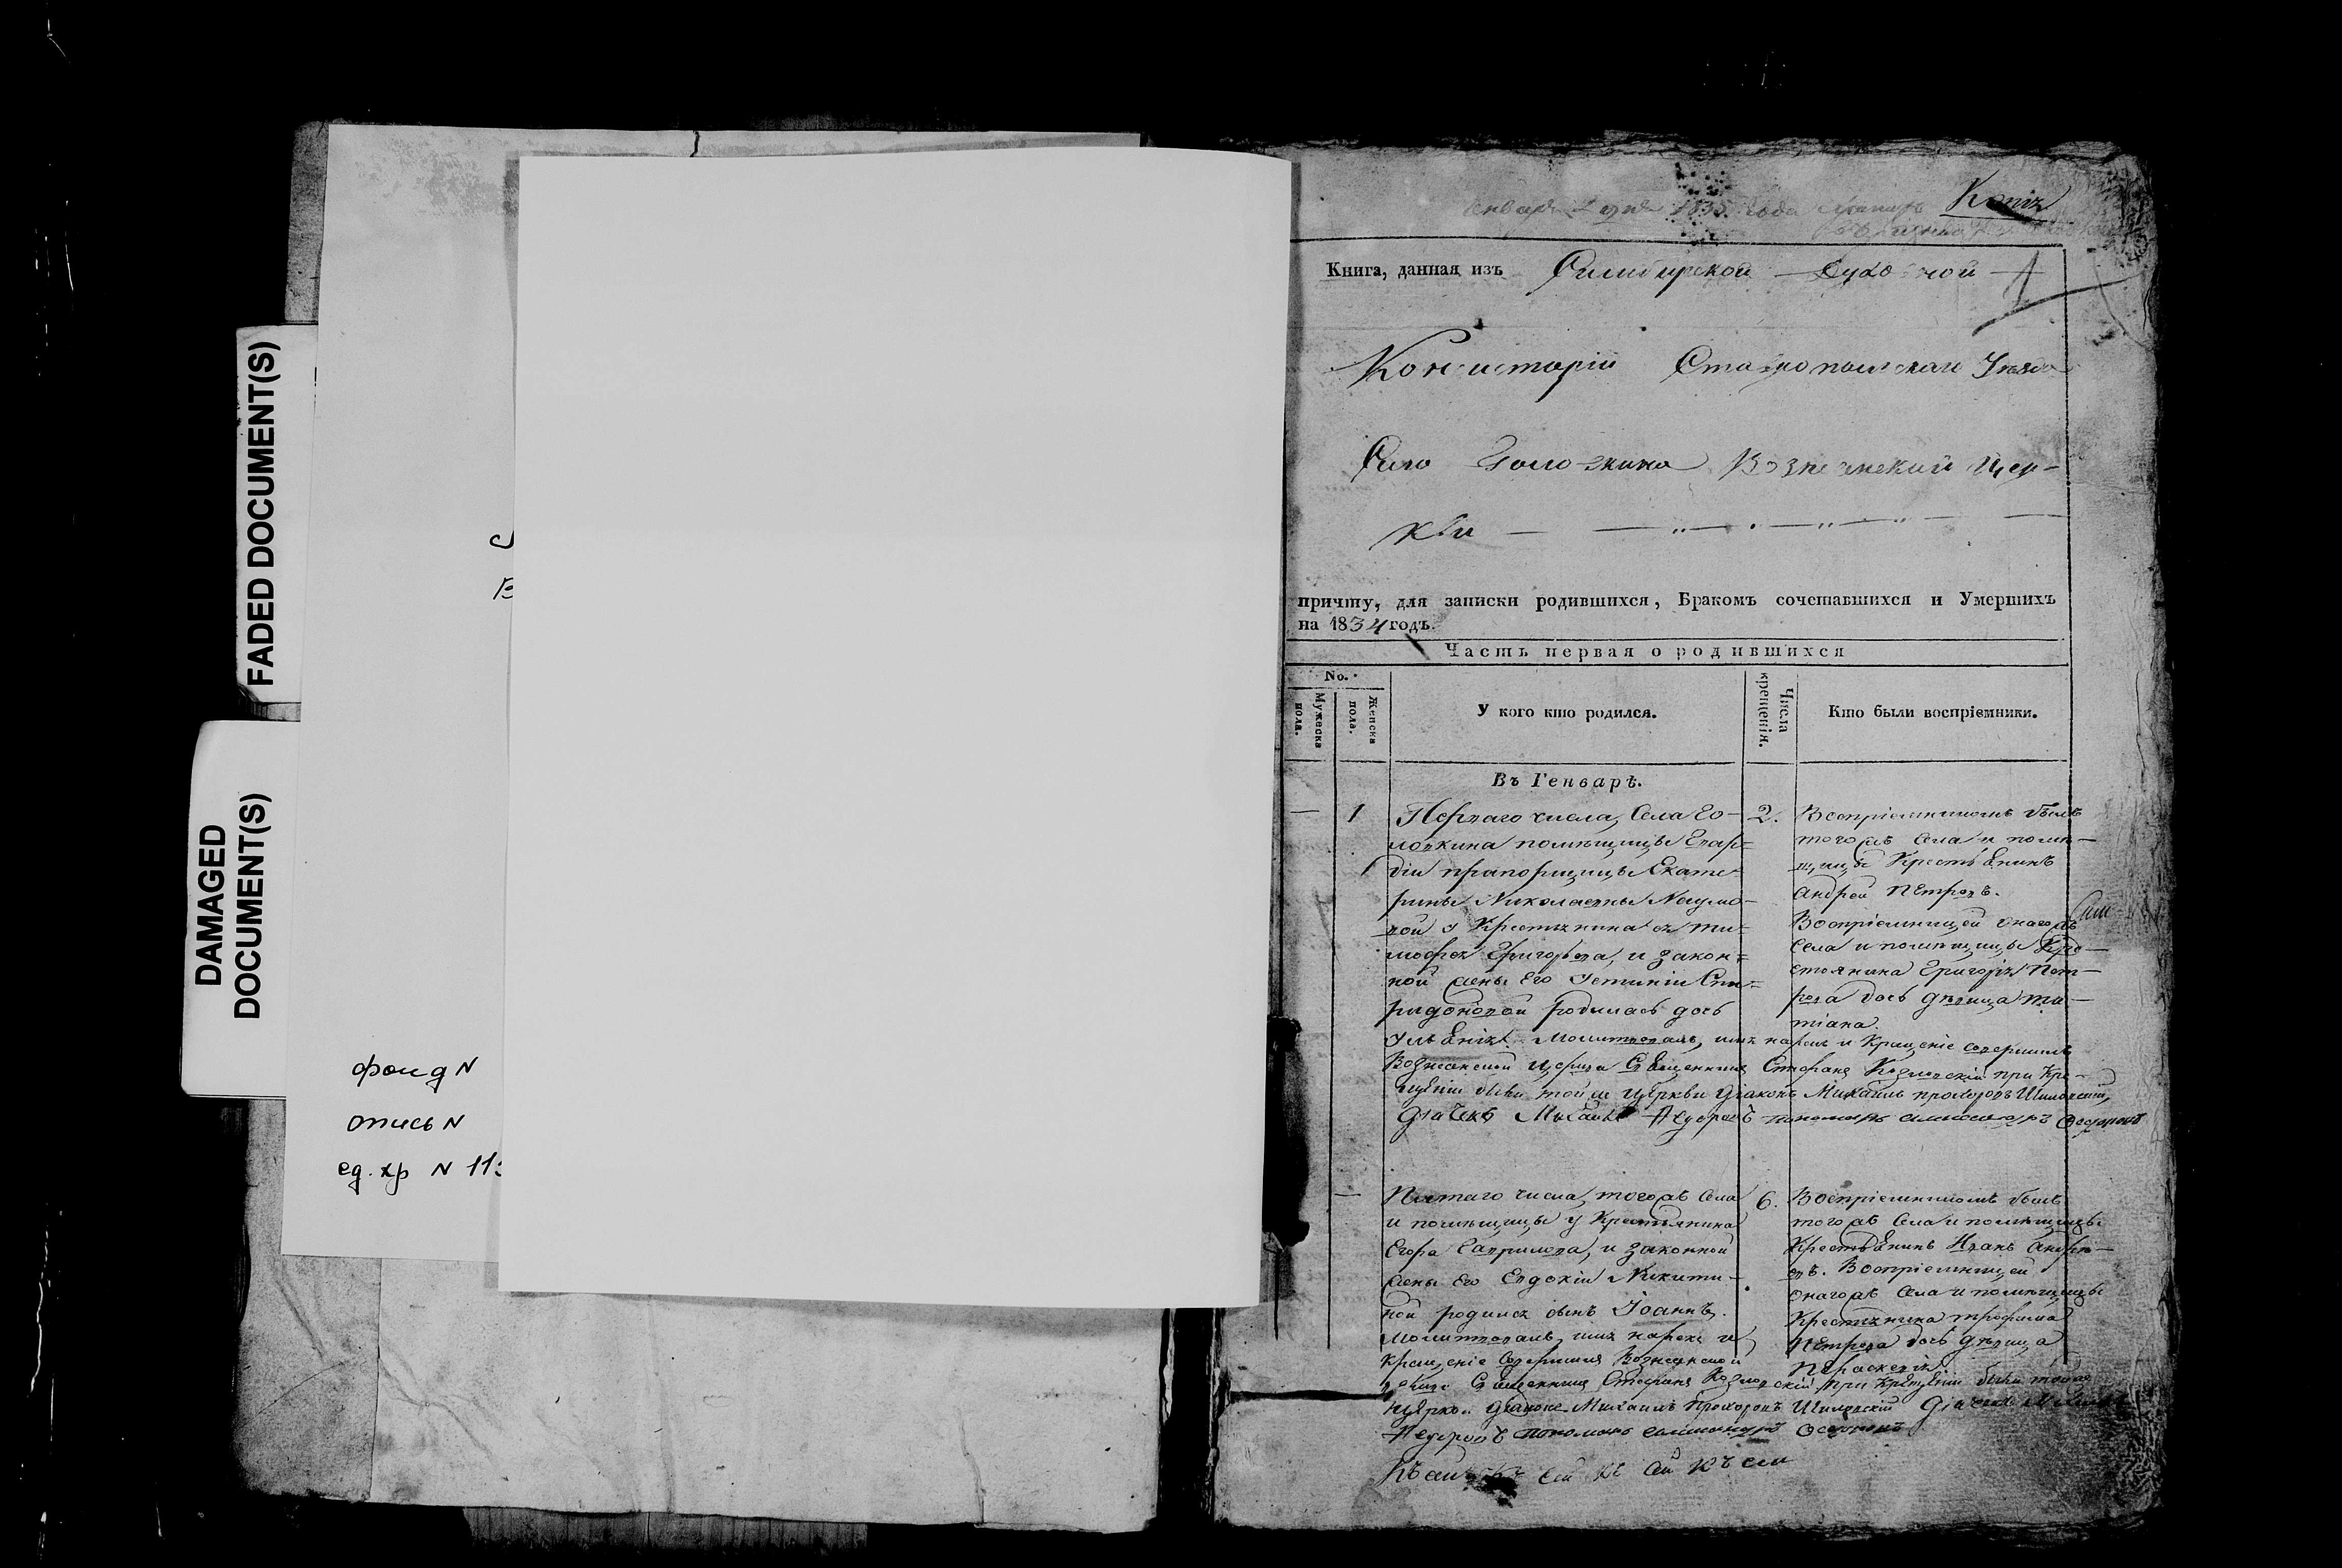 FADED DOCUMENT(S)
DAMAGED
DOCUMENT(S)
фонд N
опись N
ед. хр N 11
Генваря 1835 года Копія
Книга, данная изъ Симбирской Духовной
1
Консисторіи Ставропольскаго Уѣзда
Село Головкина Вознесенской Цер-
кви
причту, для записки родившихся, Бракомъ сочетавшихся и Умершихъ
на 1834 годъ.
Часть первая о родившихся
No.
Мужеска пола.
Женска пола.
У кого кто родился.
Числа крещенія.
Кто были воспріемники.
Въ Генварѣ.
— 1 Перваго числа, Села Го-
ловкина помѣщицы Гвар-
діи прапорщицы Екате-
рины Николаевны Наумо-
вой у Крестьянина ея Ти-
мофея Григорьева, и закон-
ной жены его Устиніи Спи-
ридоновой родилась дочь
Ульянія. Молитвовалъ, имя нарекъ и Крещеніе совершилъ
Вознесенской церкви Священникъ Стефанъ Козловскій при Кре-
щеніи были той же церкви діаконъ Михаилъ Прохоровъ Шиловскій,
дьячекъ Михаилъ Федоровъ пономарь Александръ Федоровъ
2. Воспріемникомъ былъ
того жъ Села и помѣ-
щицы Крестьянинъ
Андрей Петровъ.
Воспріемницей онаго жъ
Села и помѣщицы Кре-
стьянина Григорія Пет-
рова дочь дѣвица Та-
тіана.
— Пятаго числа, того жъ Села
и помѣщицы у Крестьянина
Егора Гаврилова, и законной
жены его Евдокіи Никити-
ной родился сынъ Іоаннъ.
Молитвовалъ, имя нарекъ и
Крещеніе Совершилъ Вознесенской
церкви Священникъ Стефанъ Козловскій при Крещеніи были той же
церкви діаконъ Михаилъ Прохоровъ Шиловскій дьячекъ Михаилъ
Федоровъ пономарь Александръ Федоровъ
6. Воспріемникомъ былъ
того жъ Села и помѣщицы
Крестьянинъ Иванъ Андре-
евъ. Воспріемницей
онаго жъ Села и помѣщицы
Крестьянина Трофима
Петрова дочь дѣвица
Параскевія
Къ сей